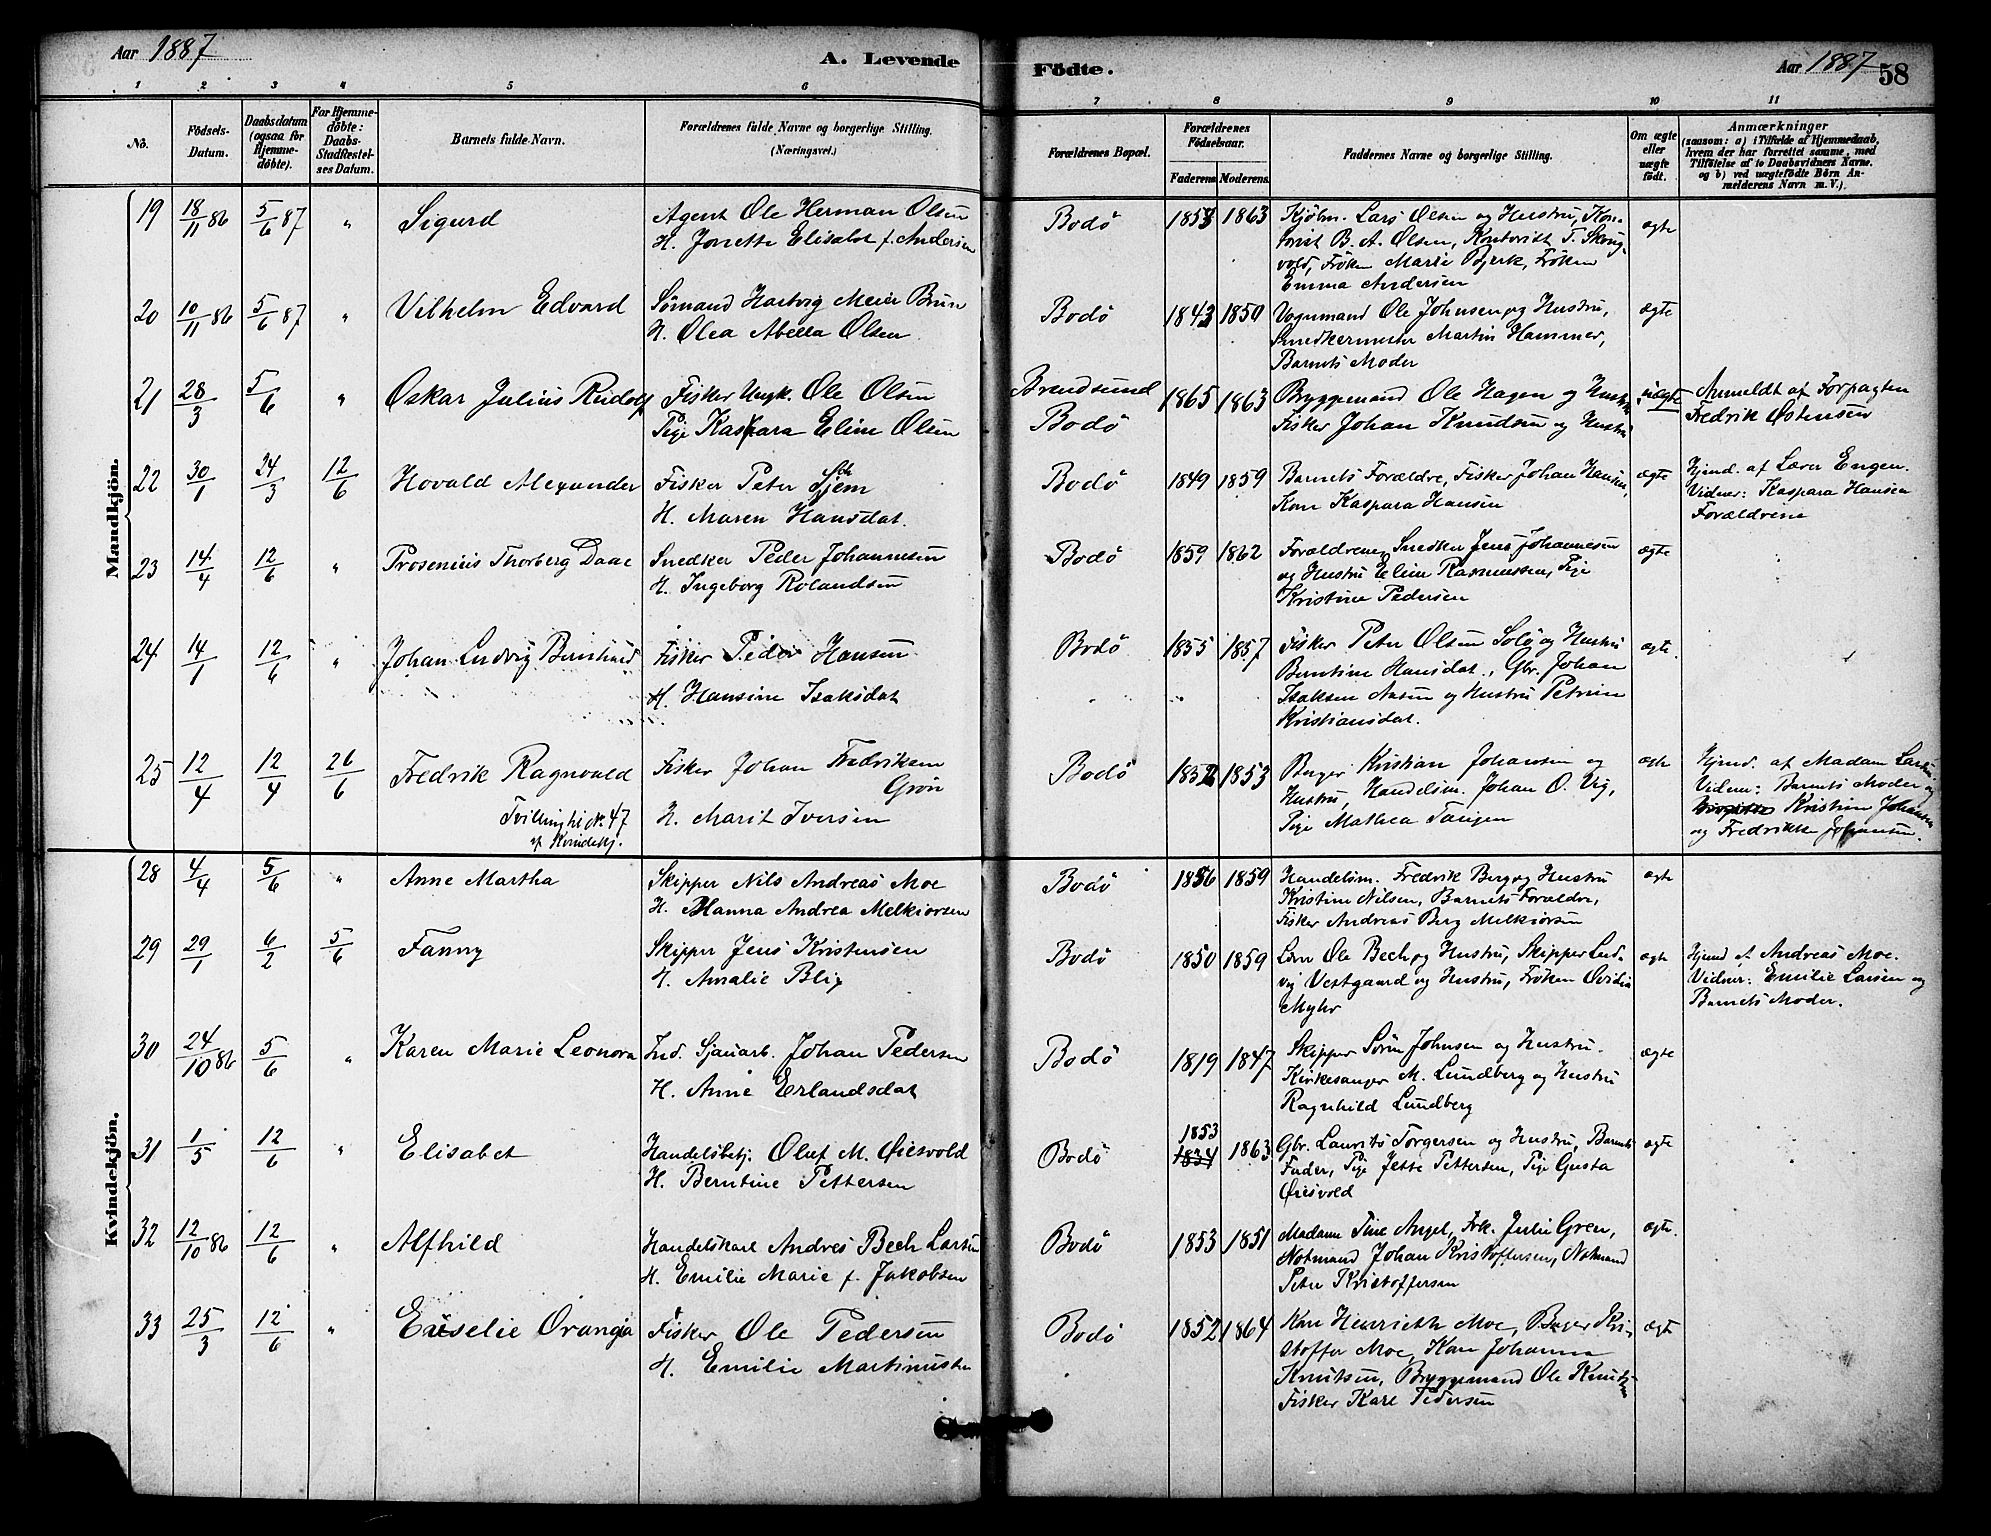 Aar 1887
A. Levende
Födte.
Aar 1887
58
1 2 3 4 5 6 7 8 9 10 11
No.
Födsels-
Datum.
Daabsdatum
(ogsaa for
Hjemme-
döbte).
For Hjemme-
döbte:
Daabs-
Stadfæstel-
ses Datum.
Barnets fulde Navn.
Forældrenes fulde Navne og borgerlige Stilling.
(Næringsvei.)
Forældrenes Bopæl.
Forældrenes
Födselsaar.
Faderens Moderens.
Faddernes Navne og borgerlige Stilling.
Om ægte
eller
uægte
födt.
Anmærkninger
(saasom: a) i Tilfælde af Hjemmedaab,
hvem der har forrettet samme, med
Tilföielse af to Daabsvidners Navne.
og b) ved uægtefödte Börn An-
melderens Navn m. V.).
Mandkjön.
19 18/11 86 5/6 87 " Sigurd
Agent Ole Herman Olsen
H. Jonette Elisabet f. Andersen
Bodø 1853 1863
Kjøbm. Lars Olsen og Hustru, Kon-
torist B. A. Olsen, Kontorist T. Skoug-
vold, Frøken Marie Bjerk, Frøken
Emma Andersen
ægte
20 10/11 86 5/6 87 " Vilhelm Edvard
Sømand Hartvig Meier Brun
H. Olea Abella Olsen
Bodø 1843 1859
Vognmand Ole Johnsen og Hustru,
Snedkermester Martin Hammer,
Barnets Moder
ægte
21 28/3 5/6 " Oskar Julius Rudolf
Fisker Ungk. Ole Olsen
Pige Kaspara Eline Olsen
Brendsund
Bodø
1865 1863
Bryggemand Ole Hagen og Hustru
Fisker Johan Knudsen og Hustru
uægte
Anmeldt af Forpagter
Fredrik Østensen
22 30/1 24/3 12/6 Hovald Alexander
Fisker Peter Sjem
H. Maren Hansdat.
Bodø 1849 1859
Barnets Forældre, Fisker Johan Hansen,
Kone Kaspara Hansen
ægte
Hjmd. af Lærer Engen.
Vidner: Kaspara Hansen
Forældrene
23 14/4 12/6 " Prosenius Thorberg Daae
Snedker Peder Johannesen
H. Ingeborg Rolandsen
Bodø 1859 1862
Forældrene, Snedker Jens Johannesen
og Hustru Eline Rasmussen, Pige
Kristine Pedersen
ægte
24 14/1 12/6 " Johan Ludvig Bernhard
Fisker Peder Hansen
H. Hansine Isaksdat
Bodø 1855 1857
Fisker Peter Olsen Solø og Hustru
Berntine Hansdat., Gbr. Johan
Isaksen Aasen og Hustru Petrine
Kristiansdat.
ægte.
25 12/4 12/4 26/6 Fredrik Ragnvald
Tvilling til N. 47
af Kvindekj.
Fisker Johan Fredriksen
Grøn
H. Marit Iversen
Bodø 1852 1853
Borger Kristian Johansen og
Hustru, Handelsm. Johan O. Vig,
Pige Mathea Tangen
ægte
Hjmd. af Madam Larsen.
Vidner: Barnets Moder og
Kristine Johansen
og Fredrikke Johansen.
Kvindekjön.
28 4/4 5/6 " Anne Martha
Skipper Nils Andreas Moe
H. Hanna Andrea Melkiorsen
Bodø 1856 1859
Handelsm. Fredrik Berg og Hustru
Kristine Nilsen, Barnets Forældre,
Fisker Andreas Berg Melkiorsen
ægte
29 29/1 6/2 5/6 Fanny
Skipper Jens Kristensen
H. Amalie Blix
Bodø 1850 1859
Lærer Ole Bech og Hustru, Skipper Lud-
vig Vestgaard og Hustru, Frøken Ovidia
Myhr
ægte
Hjmd af Andreas Moe.
Vidner: Emilie Larsen og
Barnets Moder.
30 24/10 86 5/6 " Karen Marie Leonora
Ind. Sjauarb. Johan Pedersen
H. Anne Erlandsdat
Bodø 1819 1847
Skipper Søren Johnsen og Hustru.
Kirkesanger M. Lundberg og Hustru
Ragnhild Lundberg
ægte
31 1/5 12/6 " Elisabet
Handelsbetj. Oluf M. Øiesvold
H. Berntine Pettersen
Bodø 1853 1834 1863
Gbr. Laurits Torgersen og Hustru, Barnets
Fader, Pige Jette Pettersen, Pige Gusta
Øiesvold
ægte
32 12/10 86 12/6 " Alfhild
Handelskarl Andreas Bech Larsen
H. Emilie Marie f. Jakobsen
Bodø 1853 1851
Madam Tine Angel, Frk. Julie Gren,
Notmand Johan Kristoffersen, Notmand
Peter Kristoffersen
ægte.
33 25/3 12/6 " Eliselie Orangia
Fisker Ole Pedersen
H. Emilie Martinusen
Bodø 1852 1864
Kone Henriette Moe, Bager Kri-
stoffer Moe, Kone Johanna
Knutsen, Bryggemand Ole Knutsen
Fisker Karl Pedersen
ægte